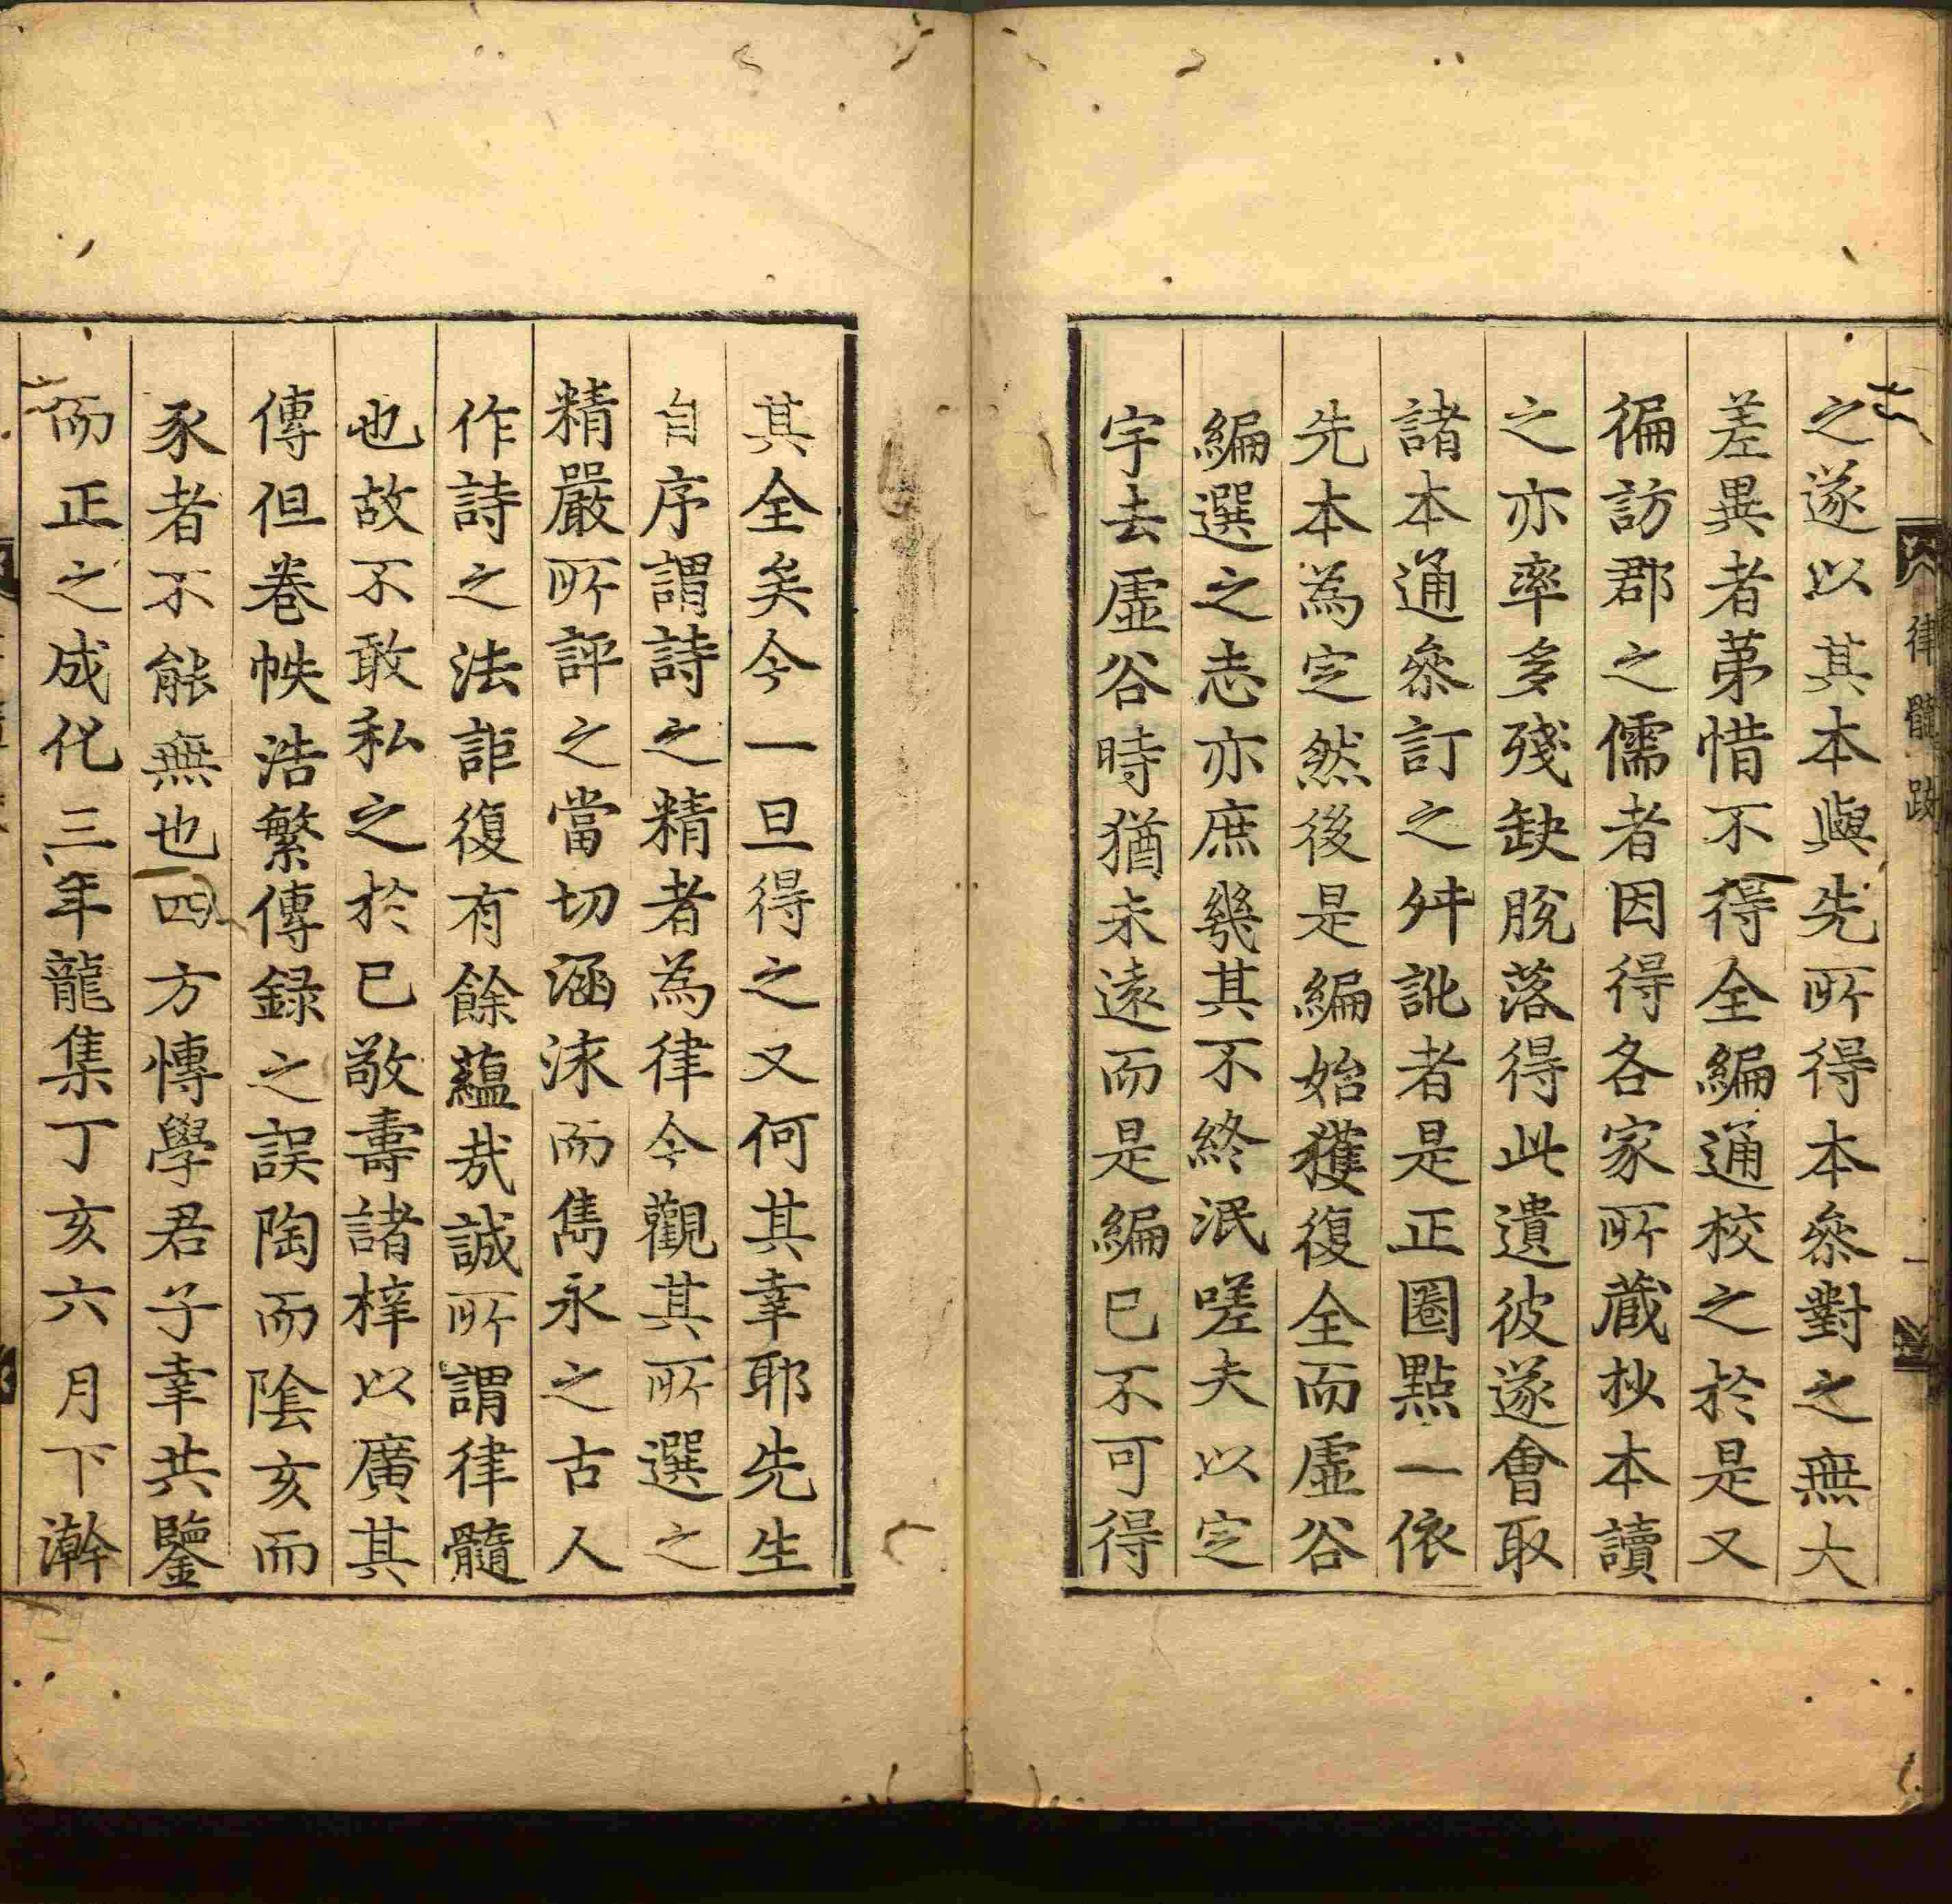 律髓跋 一
之遂以其本與先所得本叅對之無大
差異者苐惜不得全編通校之於是又
徧訪郡之儒者因得各家所蔵抄本讀
之亦率多殘缺脫落得此遺彼遂會取
諸本通叅訂之舛訛者是正圏點一依
先本為定然後是編始獲復全而虛谷
編選之志亦庶幾其不終泯嗟夫以定
宇去虛谷時猶未遠而是編已不可得
其全矣今一旦得之又何其幸耶先生
自序謂詩之精者為律今觀其所選之
精嚴所評之當切涵泳而雋永之古人
作詩之法詎復有餘蘊㢤誠所謂律髓
也故不敢私之於已敬壽諸梓以廣其
傳但卷帙浩繁傳録之誤陶而陰亥而
豕者不能無也四方博學君子幸共鑒
而正之成化三年龍集丁亥六月下澣